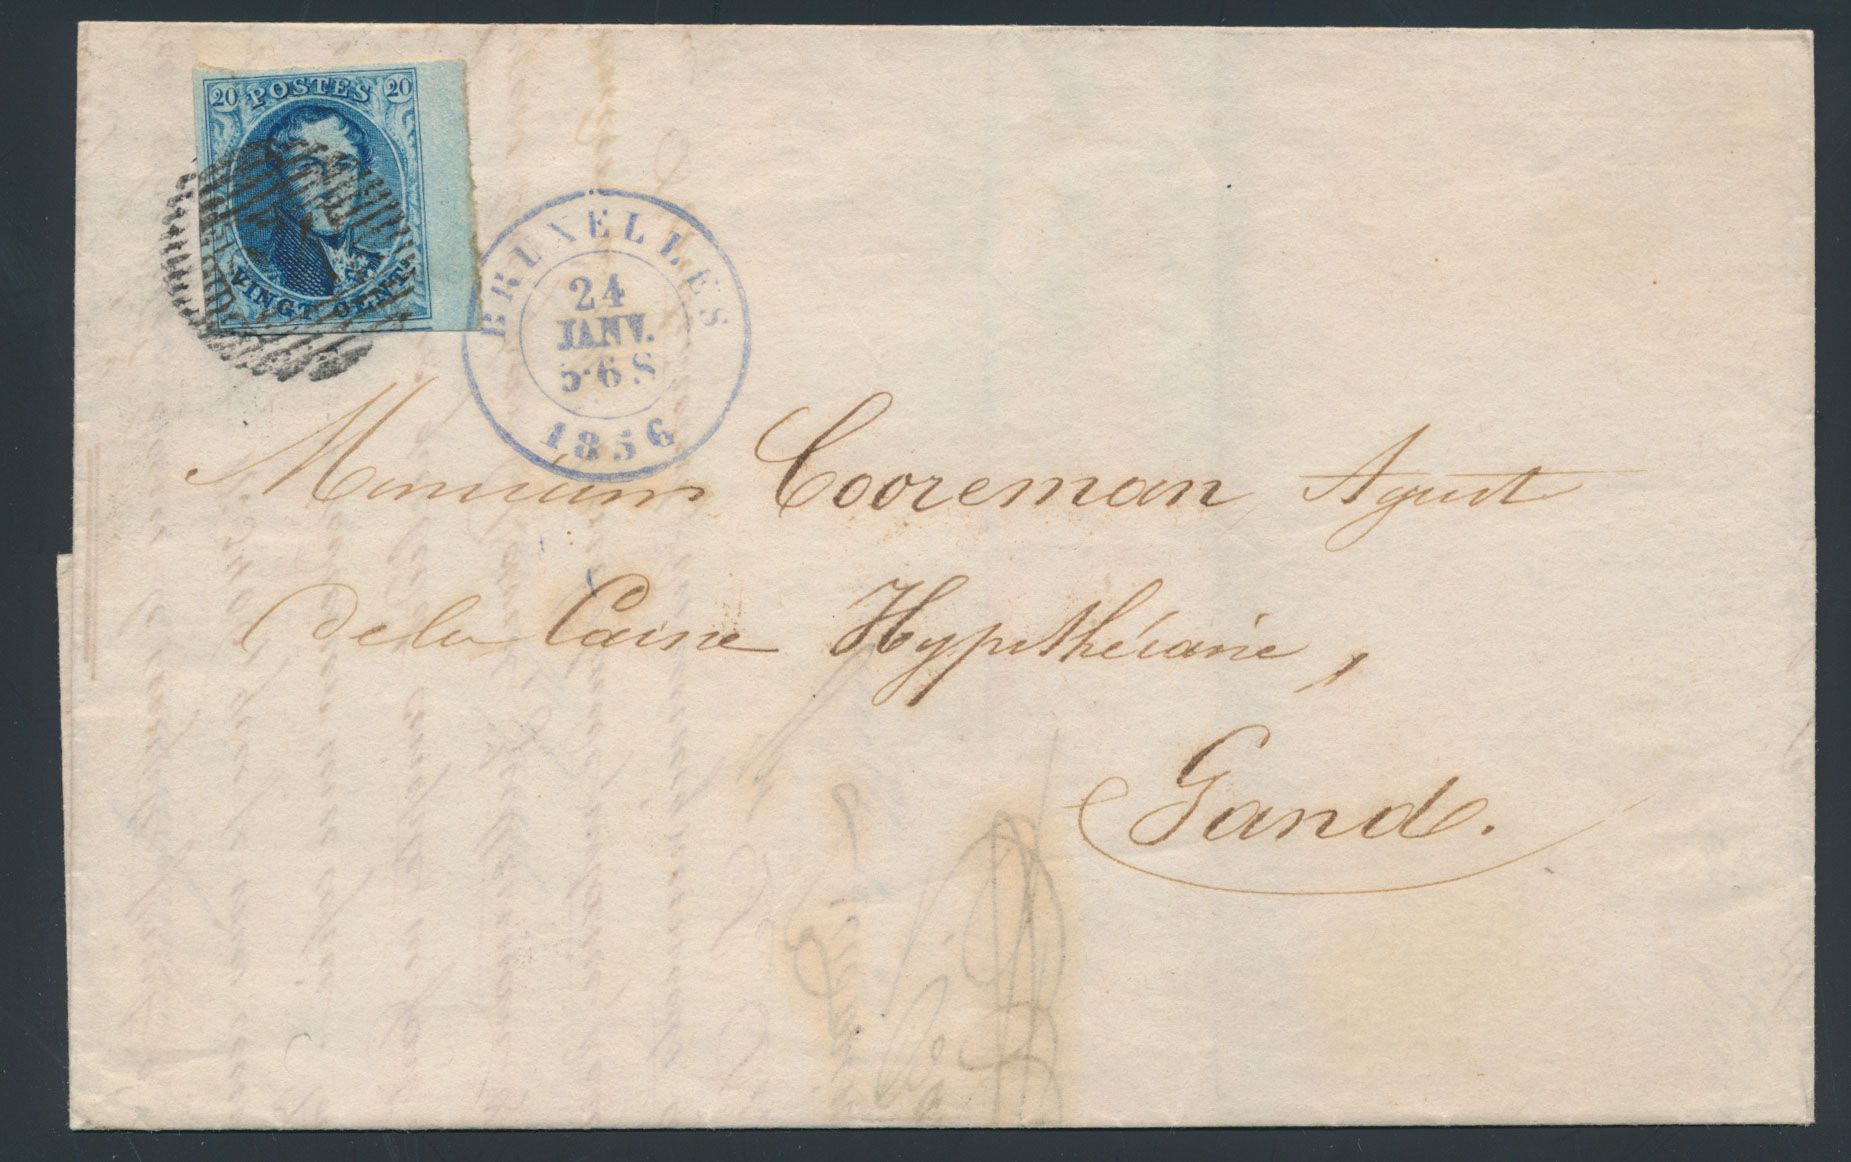 20 POSTES 20
VINGT CENT
BRUXELLES
24
JANV.
5·6 S
1856
Monsieur Cooreman, Agent
de la Caisse Hypothécaire,
Gand.